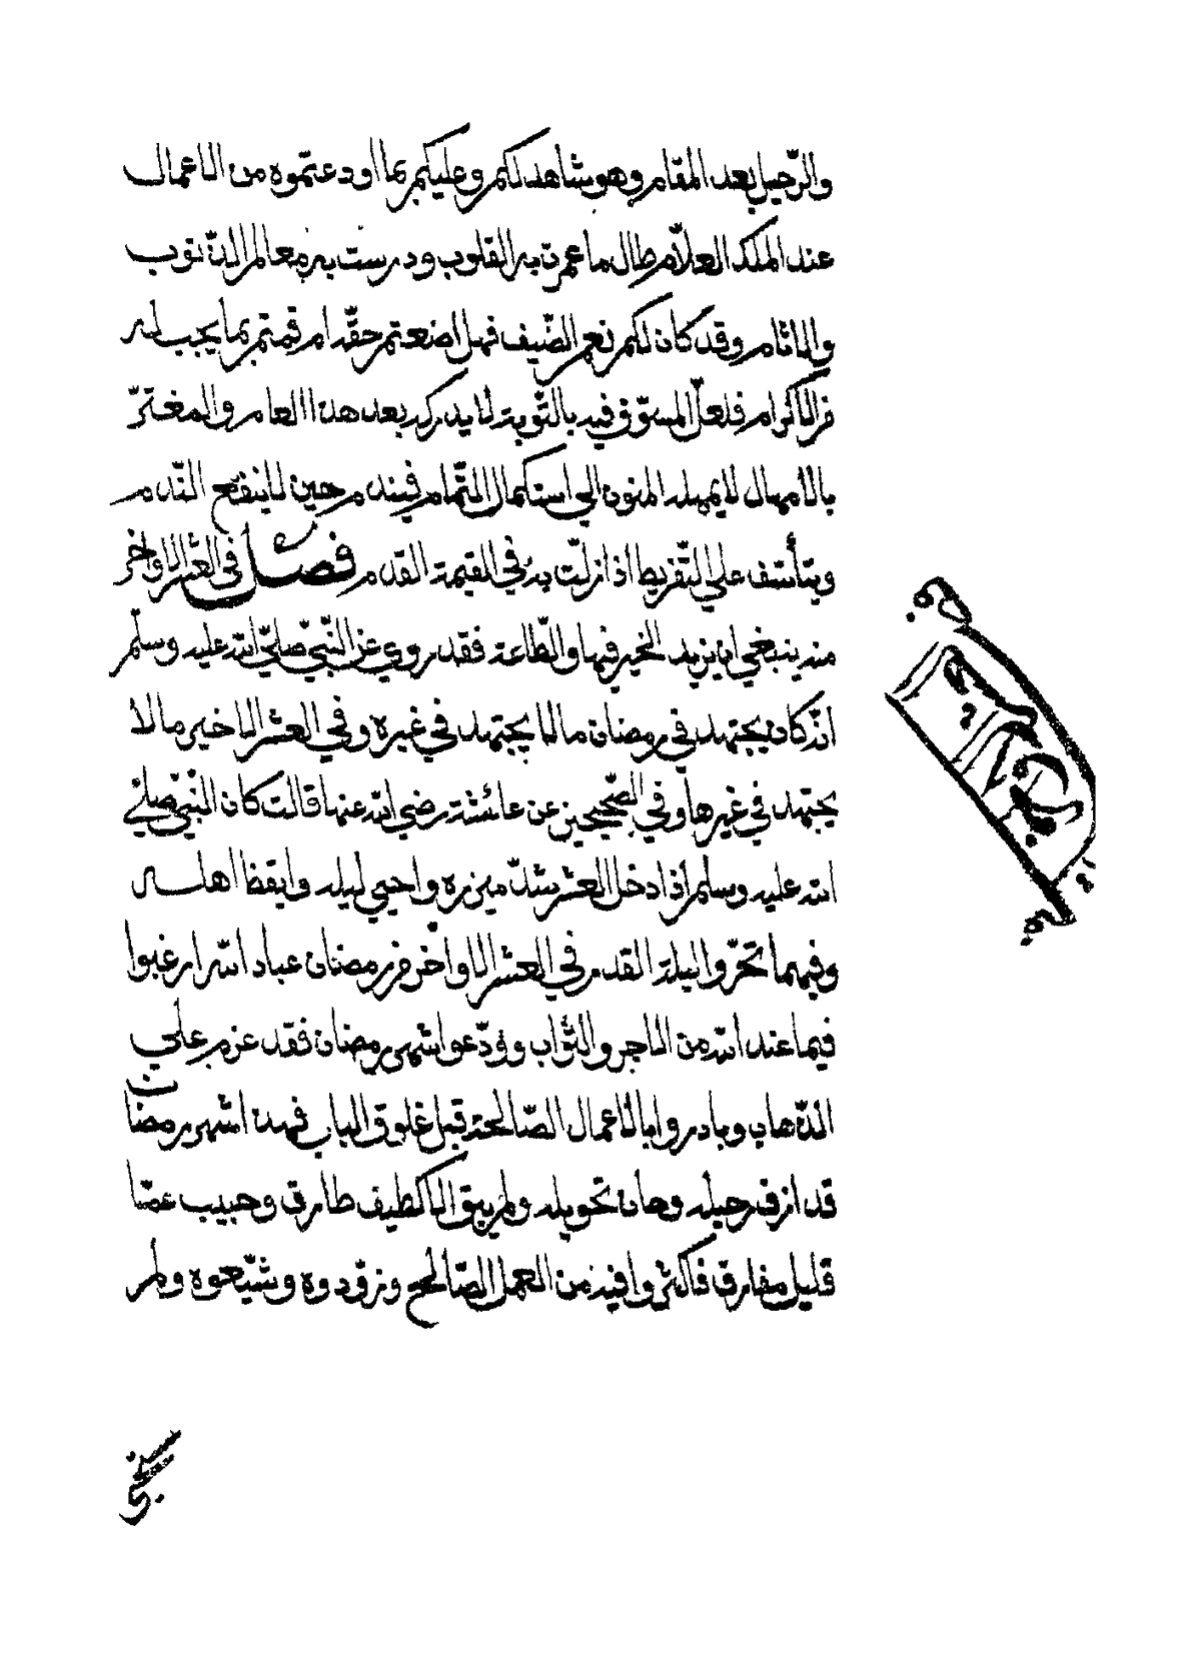 والرّحيل بعد المقام وهو شاهد لكم وعليكم بما اودعتموه من الاعمال
عند الملك العلاّم طال ما عمرت به القلوب ودرست به معالم الذّنوب
والاثام وقد كان لكم نعم الضّيف فهل اضعتم حقّه ام قمتم بما يجب له
من الاكرام فلعلّ المسوّف فيه بالتّوبة لا يدركه بعد هذا العام والمغترّ
بالامهال لا يمهله المنون الي استكمال التّمام فيندم حين لا ينفع النّدم
ويتأسّف علي التّفريط اذا زلّت به في القيمة القدم فصل في العشر الاواخر
منه ينبغي ان يزيد الخير فيها والطّاعة فقد روي عن النّبيّ صلّي الله عليه وسلّم
انّه كان يجتهد في رمضان ما لا يجتهد في غيره وفي العشر الاخير ما لا
يجتهد في غيرها وفي الصّحيحين عن عائشة رضي الله عنها قالت كان النّبيّ صلّي
الله عليه وسلّم اذا دخل العشر شدّ ميزره واحيي ليله وايقظ اهله
وفيهما تحرّوا ليلة القدر في العشر الاواخر من رمضان عباد الله ارغبوا
فيما عند الله من الاجر والثّواب وودّعوا شهر رمضان فقد عزم علي
الذّهاب وبادروا بالاعمال الصّالحة قبل غلوق الباب فهذا شهر رمضان
قد ازف رحيله وحان تحويله ولم يبق الا كطيف طارق وحبيب عمّا
قليل مفارق فاكثروا فيه من العمل الصّالح وتزوّدوه وشيّعوه ولم